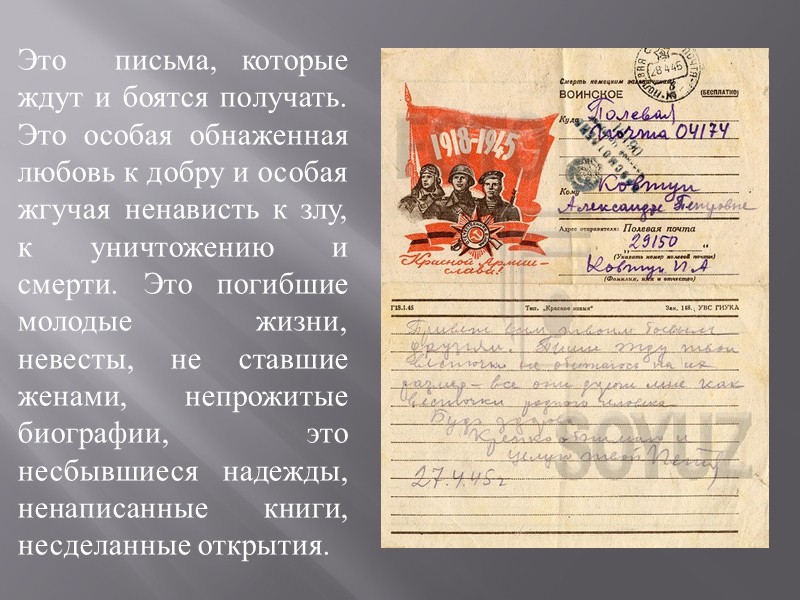 Это письма, которые
ждут и боятся получать.
Это особая обнаженная
любовь к добру и особая
жгучая ненависть к злу,
к уничтожению и
смерти. Это погибшие
молодые жизни,
невесты, не ставшие
женами, непрожитые
биографии, это
несбывшиеся надежды,
ненаписанные книги,
несделанные открытия.
28 4 45
Смерть немецким
ВОИНСКОЕ (БЕСПЛАТНО)
1918-1945
Куда Полевая
почта 04174
Кому Ковтун
Александре Петровне
Адрес отправителя: Полевая почта
„29150“
(Указать номер полевой почты)
Ковтун П.А
(Фамилия, имя и отчество)
Красной Армии—
слава!
Г18.1.45 Тип. „Красное знамя“ Зак. 148. УВС ГИУКА
Привет вам твоим боевым
друзьям. Пиши жду твои
весточки не обижаюсь на их
размер – все они дороги мне как
весточки родного человека
Будь здорова
Крепко обнимаю и
целую твой Петр
27.4.45г
SOYUZ